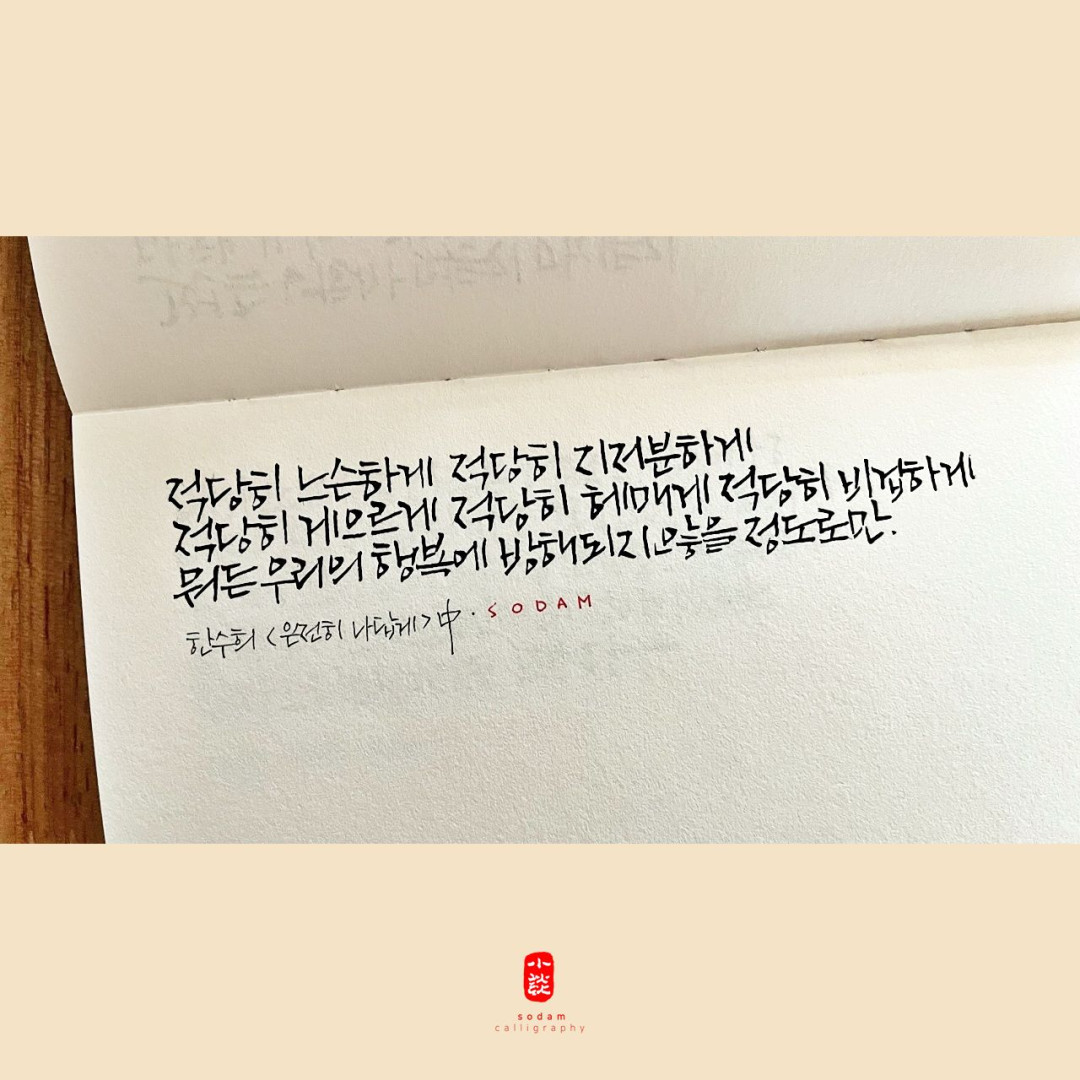 적당히 느슨하게 적당히 지저분하게
적당히 게으르게 적당히 헤매게 적당히 비겁하게
뭐든 우리의 행복에 방해되지 않을 정도로만.
한수희 <온전히 나답게> 中 · SODAM
小談
sodam
calligraphy